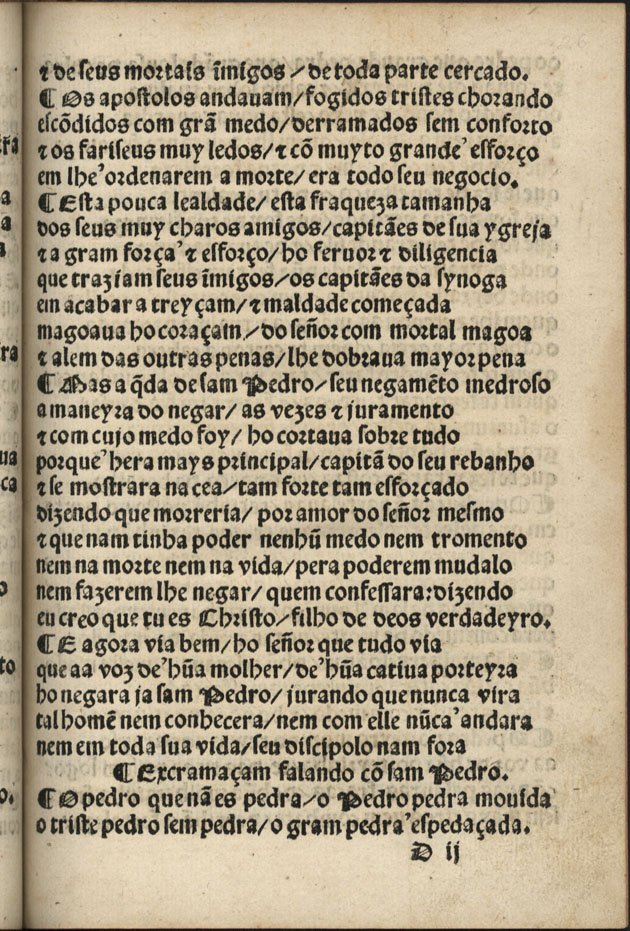 ⁊ de seus mortais ĩmigos / de toda parte cercado.
¶ Os apostolos andauam/fogidos tristes chorando
escõdidos com grã medo/derramados sem conforto
⁊ os fariseus muy ledos/⁊ cõ muyto grande' esforço
em lhe'ordenarem a morte/era todo seu negocio.
¶ Esta pouca lealdade/esta fraqueza tamanha
dos seus muy charos amigos/capitães de sua ygreja
⁊ a gram força'⁊ esforço/ho feruor ⁊ diligencia
que traziam seus ĩmigos/os capitães da synoga
em acabar a treyçam/⁊ maldade começada
magoaua ho coraçam/do señor com mortal magoa
⁊ alem das outras penas/lhe dobraua mayor pena
¶ Mas a q̃da de sam Pedro/seu negamẽto medroso
a maneyra do negar/as vezes ⁊ juramento
⁊ com cujo medo foy/ho cortaua sobre tudo
porque'hera mays principal/capitã do seu rebanho
⁊ se mostrara na cea/tam forte tam esforçado
dizendo que morreria/por amor do señor mesmo
⁊ que nam tinha poder nenhũ medo nem tromento
nem na morte nem na vida/pera poderem mudalo
nem fazerem lhe negar/quem confessara:dizendo
eu creo que tu es Christo/filho de deos verdadeyro.
¶ E agora via bem/ho señor que tudo via
que aa voz de'hũa molher/de'hũa catiua porteyra
ho negara ja sam Pedro/jurando que nunca vira
tal homẽ nem conhecera/nem com elle nũca'andara
nem em toda sua vida/seu discipolo nam fora
¶ Excramaçam falando cõ sam Pedro.
¶ O pedro que nã es pedra/o Pedro pedra mouida
o triste pedro sem pedra/o gram pedra'espedaçada.
D ij